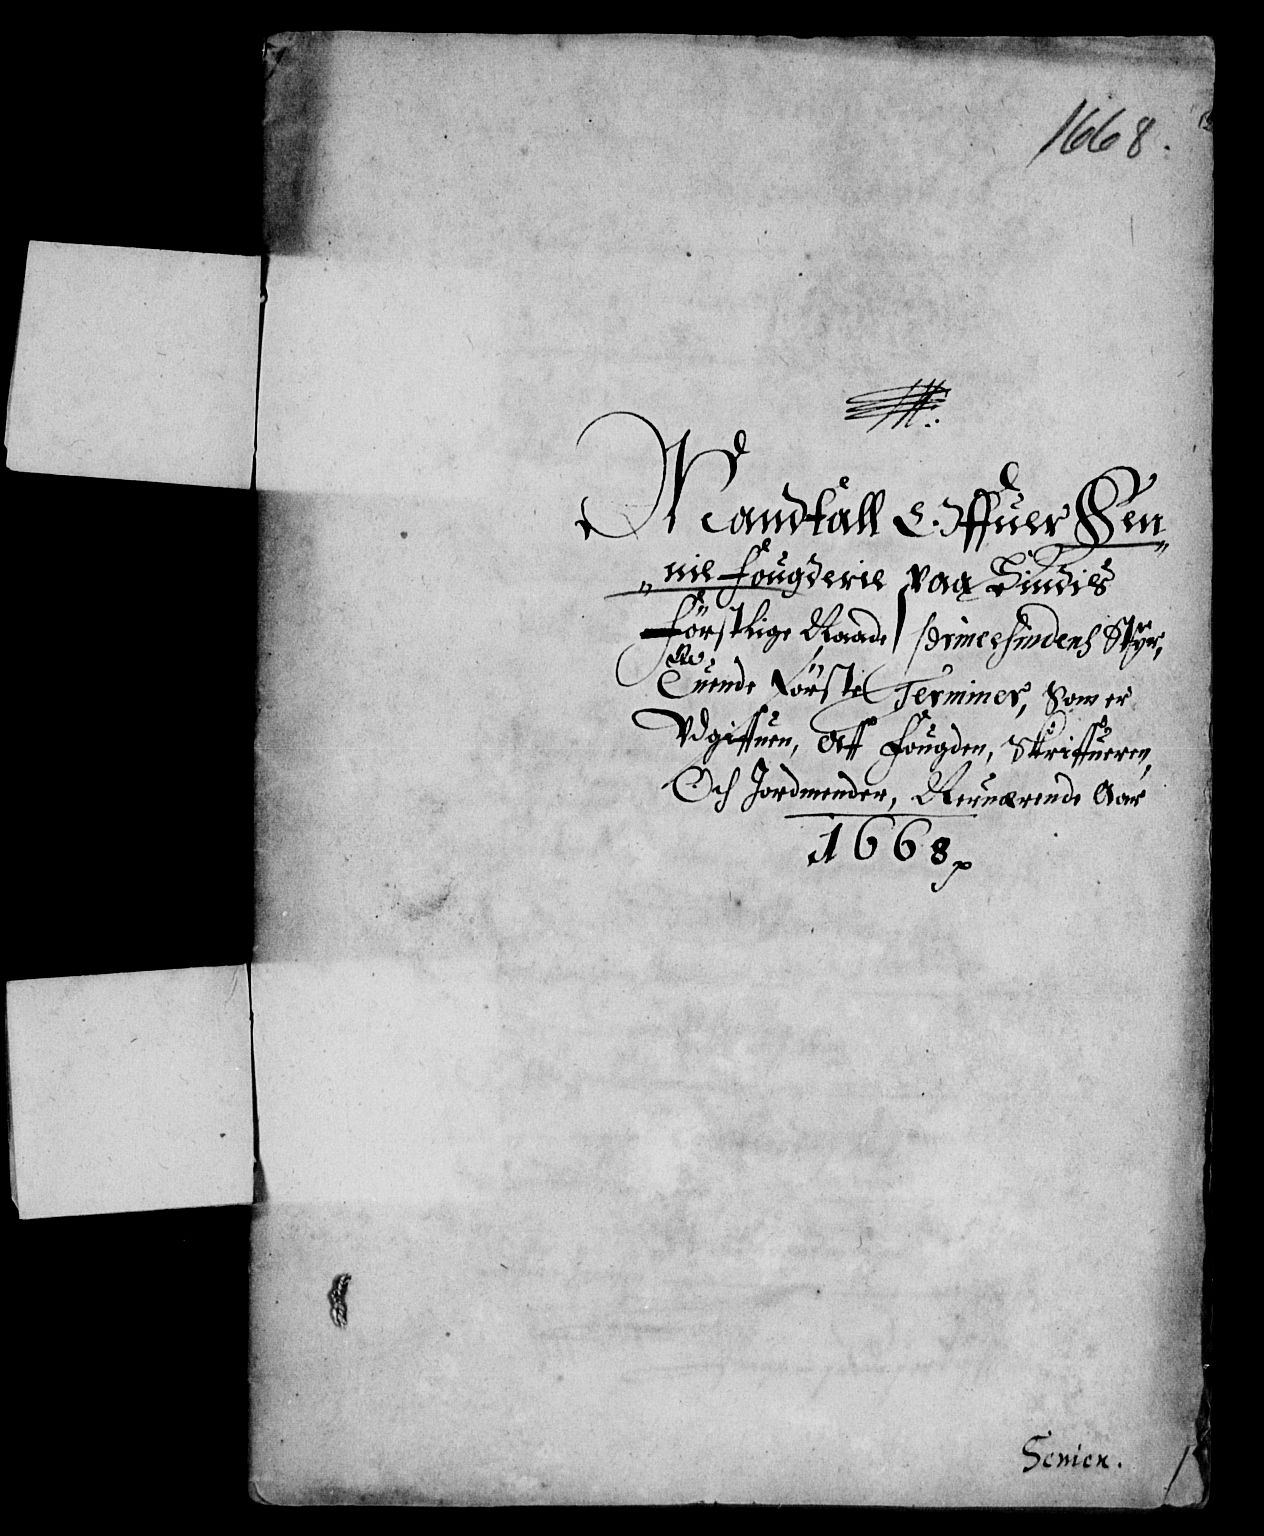 1668.
Mandtall Offuer Sen„
„nie fougderie paa Hindis
förstlige Naade Princesindens Styr,
Tuende Förste Terminer, Som er
Udgiffuen, Aff Fougden, Skriffueren,
Och Jordmender, Neruærende Aar
1668
Senien.